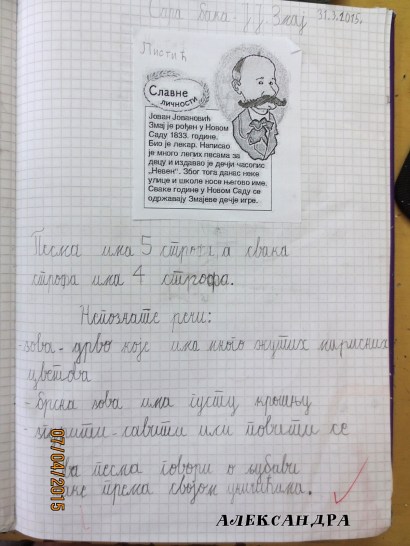 Стара бака - Ј.Ј. Змај 31.3.2015.
Листић
Славне
личности
Јован Јовановић
Змај је рођен у Новом
Саду 1833. године.
Био је лекар. Написао
је много лепих песама за
децу и издавао је дечји часопис
„Невен“. Због тога данас неке
улице и школе носе његово име.
Сваке године у Новом Саду се
одржавају Змајеве дечје игре.
Песма има 5 строфа, а свака
строфа има 4 строфа.
Непознате речи:
-зова - дрво које има много жутих мирисних
цветова
- брсна зова има густу крошњу
- савити или повити се
песма говори о љубави
баке према својом унучићима.
07/04/2015
АЛЕКСАНДРА